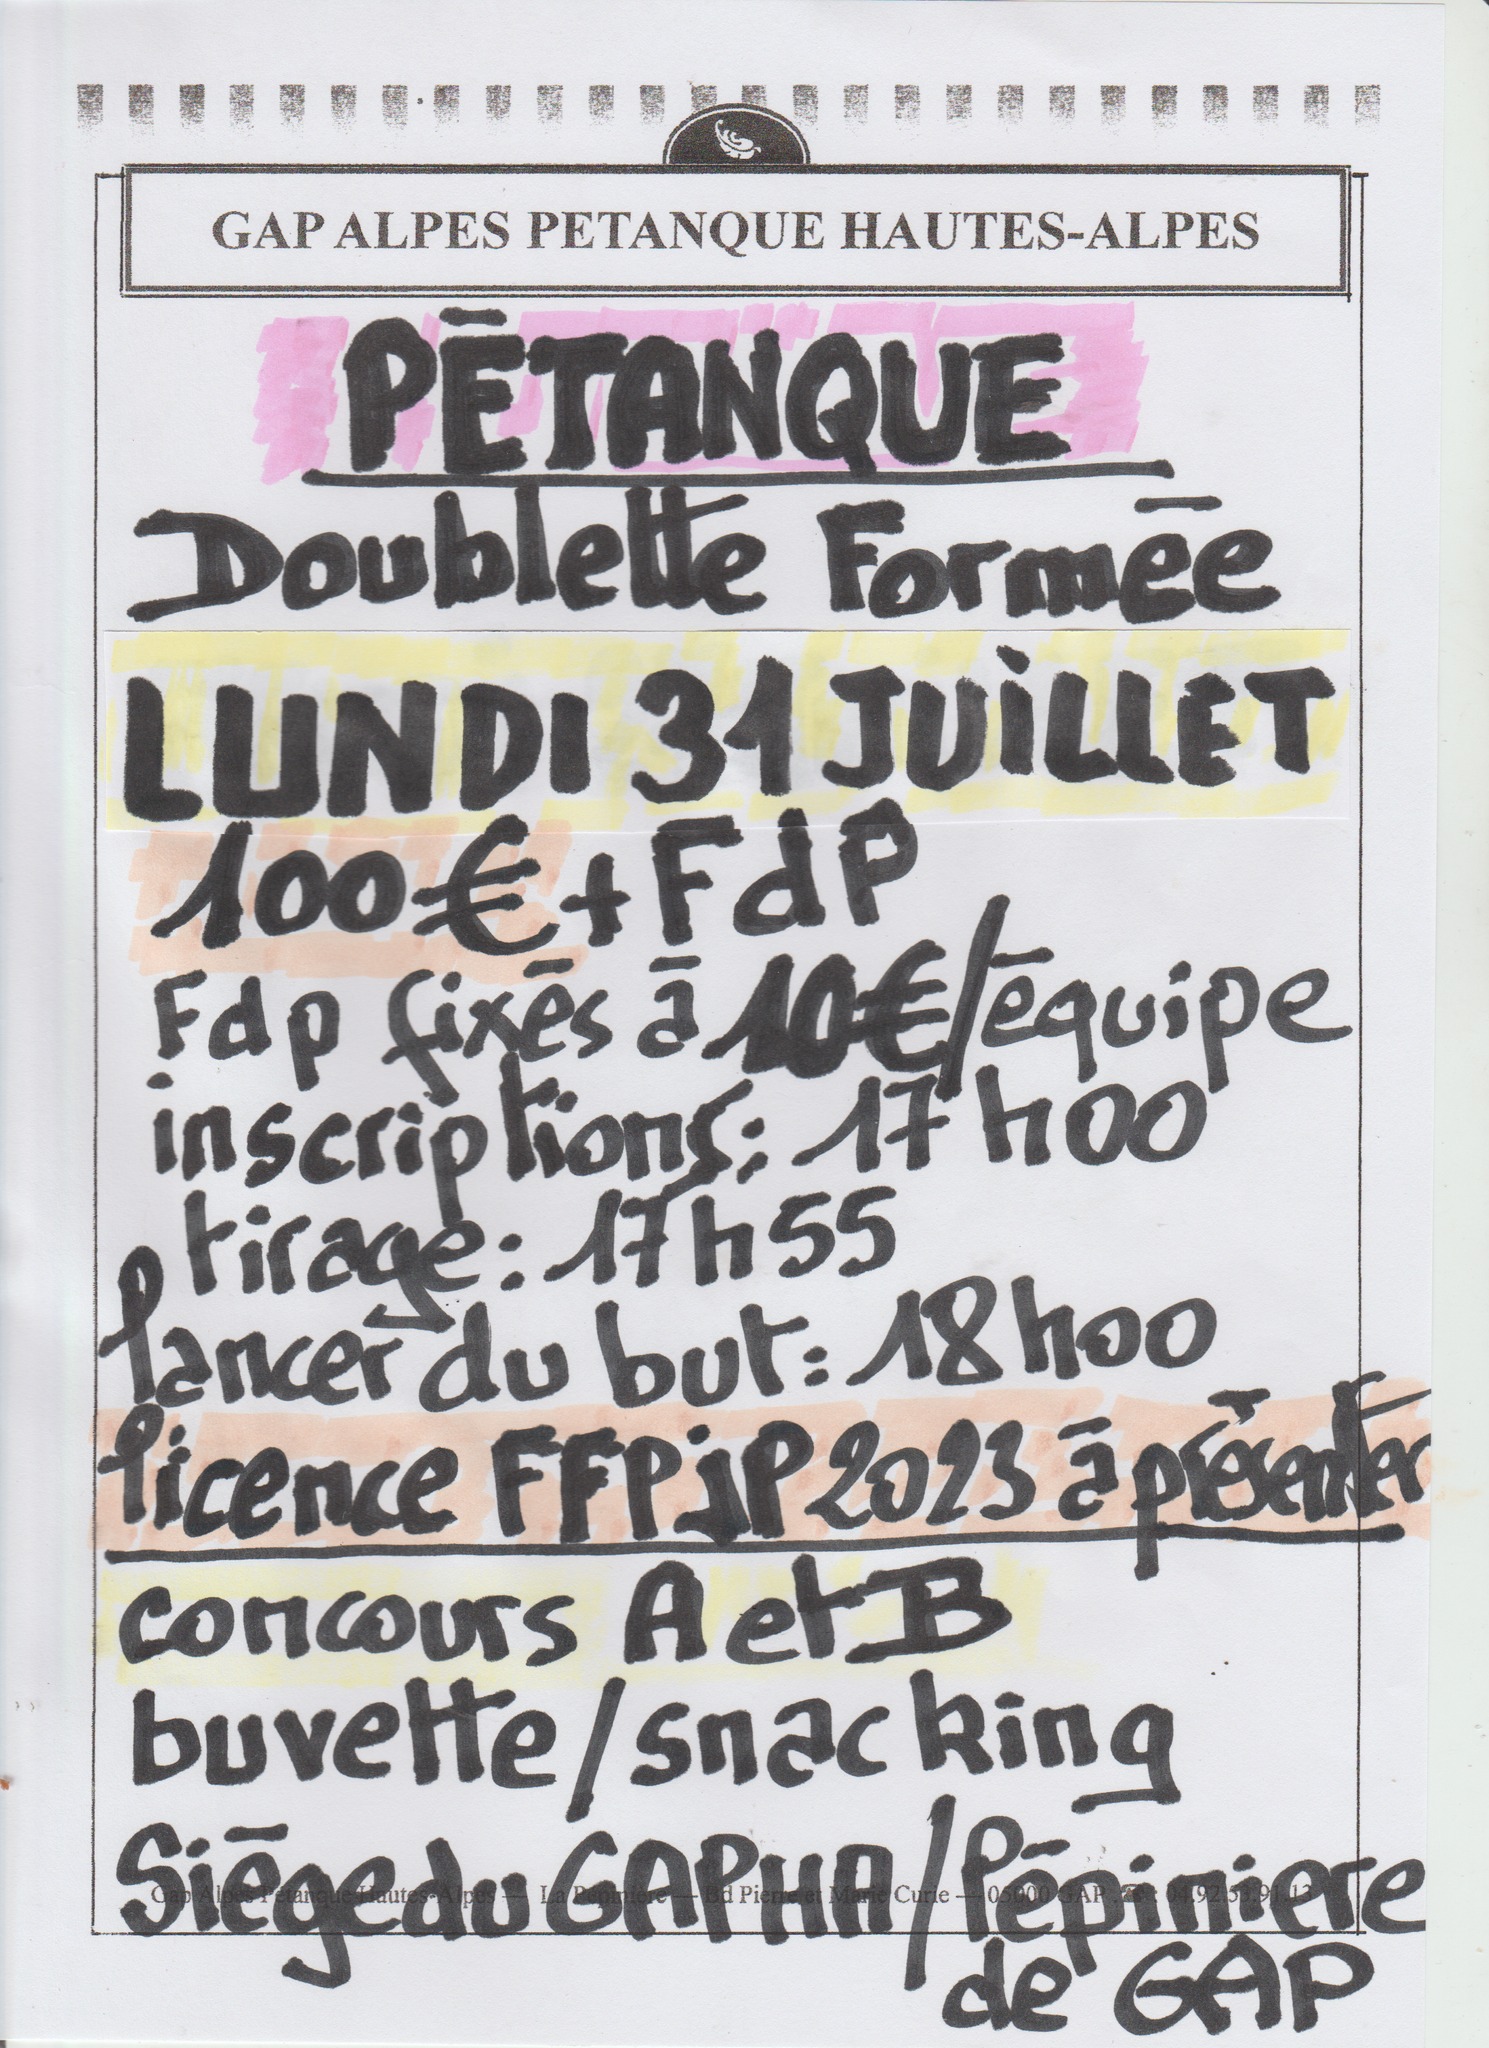 GAP ALPES PETANQUE HAUTES-ALPES
PÉTANQUE
Doublette Formée
LUNDI 31 JUILLET
100€ + FdP
Fdp fixés à 10€/équipe
inscriptions: 17h00
tirage: 17h55
lancer du but: 18h00
licence FFPjP 2023 à présenter
concours A et B
buvette/snacking
Siège du GAPHA/Pépinière
Gap Alpes Pétanque Hautes-Alpes — La Pépinière — Bd Pierre et Marie Curie — 05000 GAP. ☎ : 04.92.53.91.13
de GAP